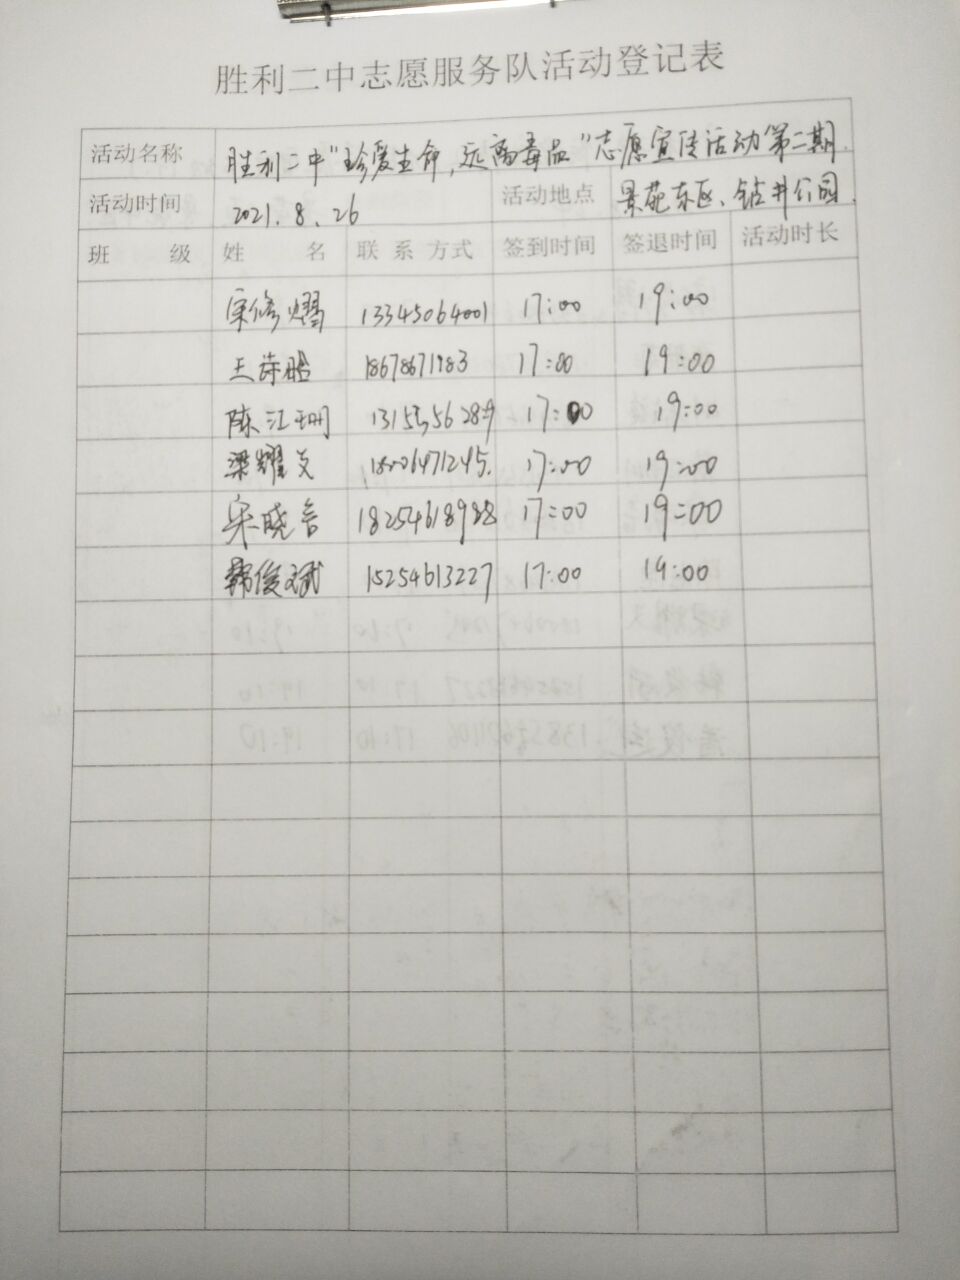 胜利二中志愿服务队活动登记表
活动名称 胜利二中"珍爱生命,远离毒品"志愿宣传活动第二期.
活动时间 2021.8.26 活动地点 景苑东区、钻井公园.
班 级 姓 名 联系方式 签到时间 签退时间 活动时长
宋修熠 13345064001 17:00 19:00
王诗晗 18678671983 17:00 19:00
陈江珊 17:00 19:00
梁耀文 17:00 19:00
宋晓音 18254618988 17:00 19:00
韩俊斌 15254613227 17:00 19:00